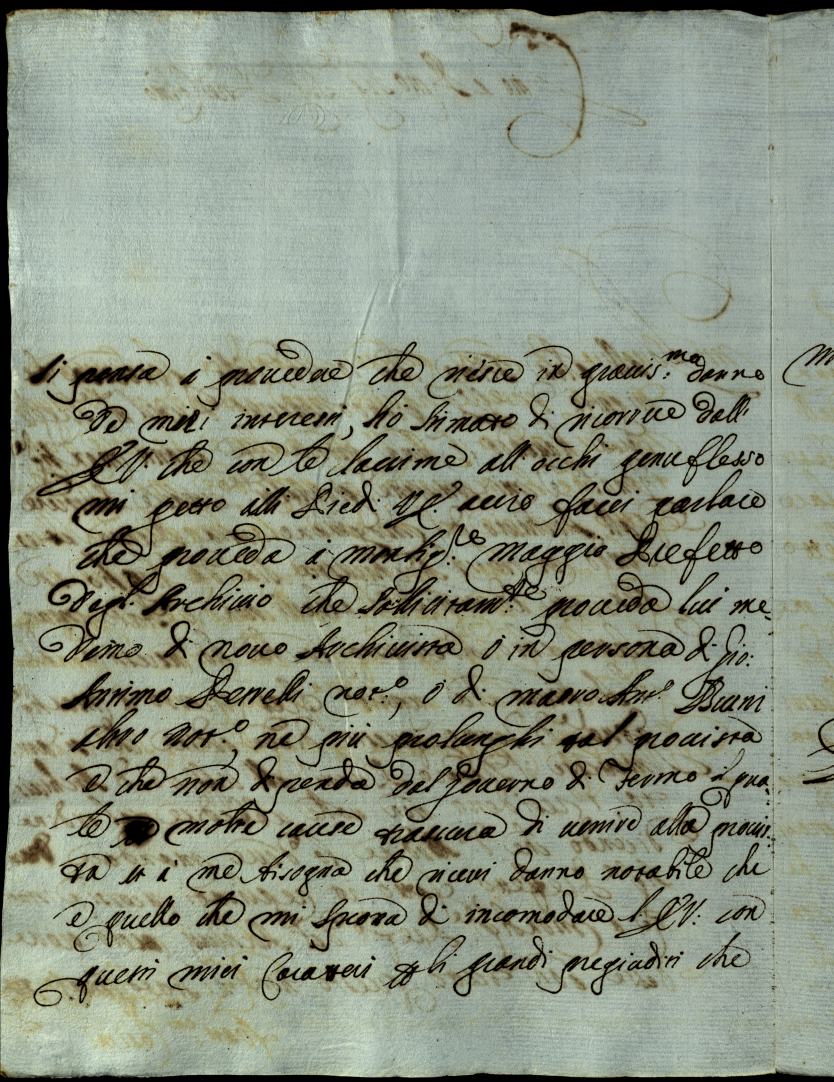 si pensa à provedere che riesce in gravis.mo danno
de miei interessi, hò stimato di ricorrere dall'
E.V. che con le lacrime all'occhi genuflesso
mi getto alli Piedi V.E. acciò facci parlare
che proveda à Monsig.re Maggio Prefetto
degl'Archivio che sollicitam.te proveda lui me-
demo di novo Archivista ò in persona di Gio:
Not.o, ò di Marco Ant.o
altro Not.o, ne più prolunghi tal provista
e che non dipenda dal Governo di Fermo il qua-
le molte cause trascura di venire alla provis-
ta et à me bisogna che ricevi danno notabile che
è quello che mi sprona di incomodare l'E.V. con
questi miei Caratteri p li grandi pregiuditii che